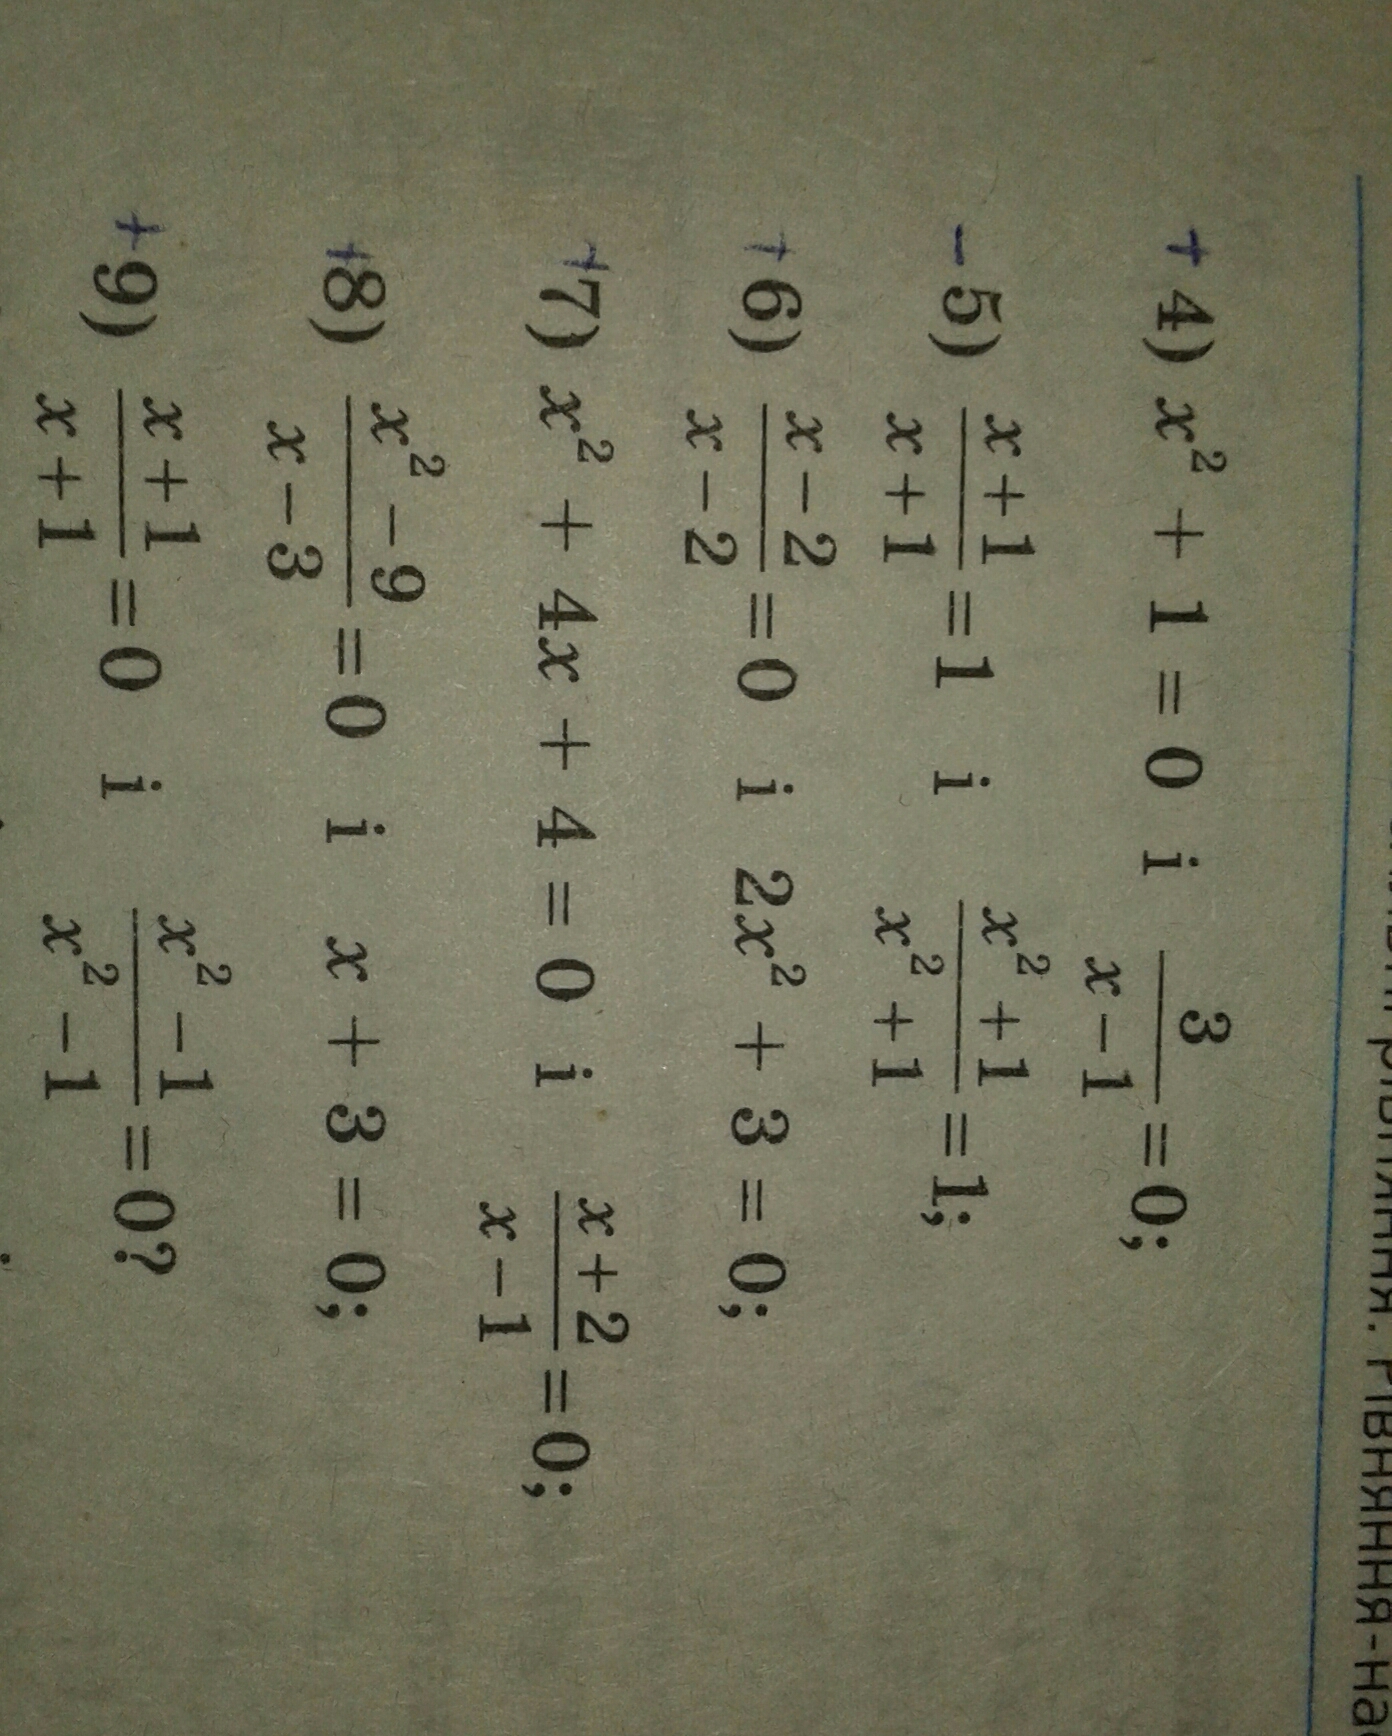 рівняння. Рівняння-на
+ 4) x² + 1 = 0 і 3/(x − 1) = 0;
− 5) (x + 1)/(x + 1) = 1 і (x² + 1)/(x² + 1) = 1;
+ 6) (x − 2)/(x − 2) = 0 і 2x² + 3 = 0;
+ 7) x² + 4x + 4 = 0 і (x + 2)/(x − 1) = 0;
+ 8) (x² − 9)/(x − 3) = 0 і x + 3 = 0;
+ 9) (x + 1)/(x + 1) = 0 і (x² − 1)/(x² − 1) = 0?